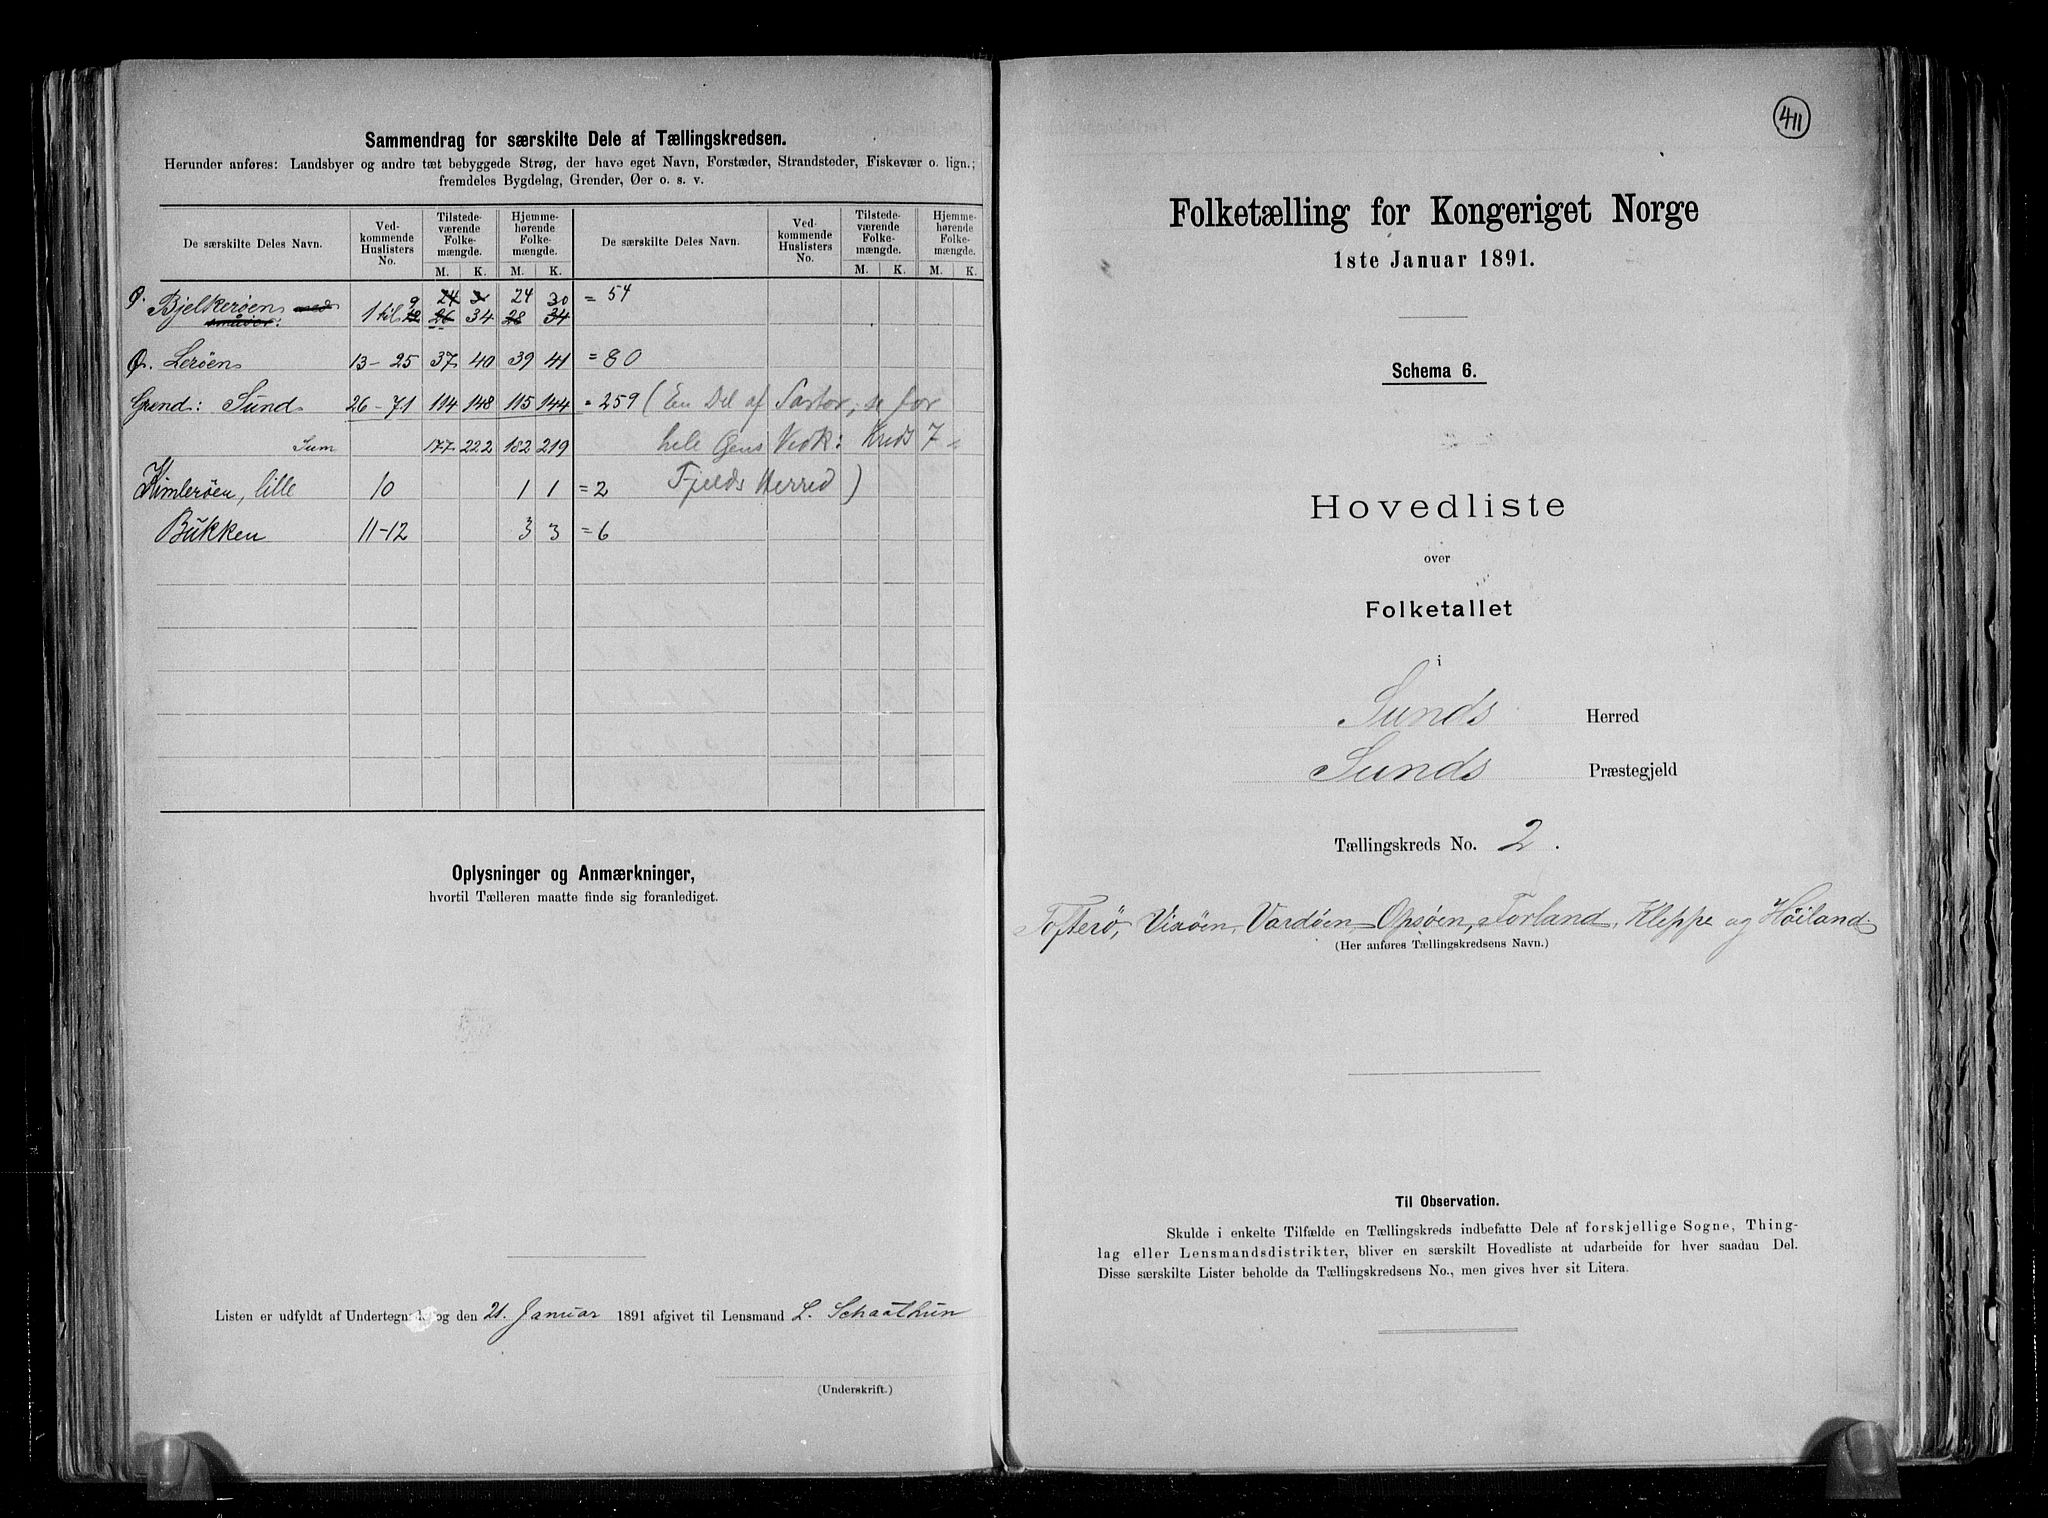 Sammendrag for særskilte Dele af Tællingskredsen.
Herunder anføres: Landsbyer og andre tæt bebyggede Strøg, der have eget Navn, Forstæder, Strandsteder, Fiskevær o. lign.;
fremdeles Bygdelag, Grender, Øer o. s. v.
De særskilte Deles Navn. Ved-kommende Huslisters No. Tilstede-værende Folke-mængde. Hjemme-hørende Folke-mængde. De særskilte Deles Navn. Ved-kommende Huslisters No. Tilstede-værende Folke-mængde. Hjemme-hørende Folke-mængde.
M. K. M. K. M. K. M. K.
Ø. Bjelkerøen med 1 til 9 24 24 30 = 54
småøer: 12 26 34 28 34
Ø. Lerøen 13-25 37 40 39 41 = 80
Grend: Sund 26-71 114 148 115 144 = 259 (En Del af Sartor, se for
Sum 177 222 182 219 hele Øens Vedk: Kreds 7 -
Himlerøen, lille 10 1 1 = 2 Fjelds Herred)
Bukken 11-12 3 3 = 6
Oplysninger og Anmærkninger,
hvortil Tælleren maatte finde sig foranlediget.
Listen er udfyldt af Undertegnede og den 21. Januar 1891 afgivet til Lensmand L. Schaathun
(Underskrift.)
411
Folketælling for Kongeriget Norge
1ste Januar 1891.
Schema 6.
Hovedliste
over
Folketallet
i
Sunds Herred
Sunds Præstegjeld
Tællingskreds No. 2.
Tofterö, Vixöen, Vardöen, Opsöen, Forland, Kleppe og Höiland.
(Her anføres Tællingskredsens Navn.)
Til Observation.
Skulde i enkelte Tilfælde en Tællingskreds indbefatte Dele af forskjellige Sogne, Thing-
lag eller Lensmandsdistrikter, bliver en særskilt Hovedliste at udarbeide for hver saadan Del.
Disse særskilte Lister beholde da Tællingskredsens No., men gives hver sit Litera.